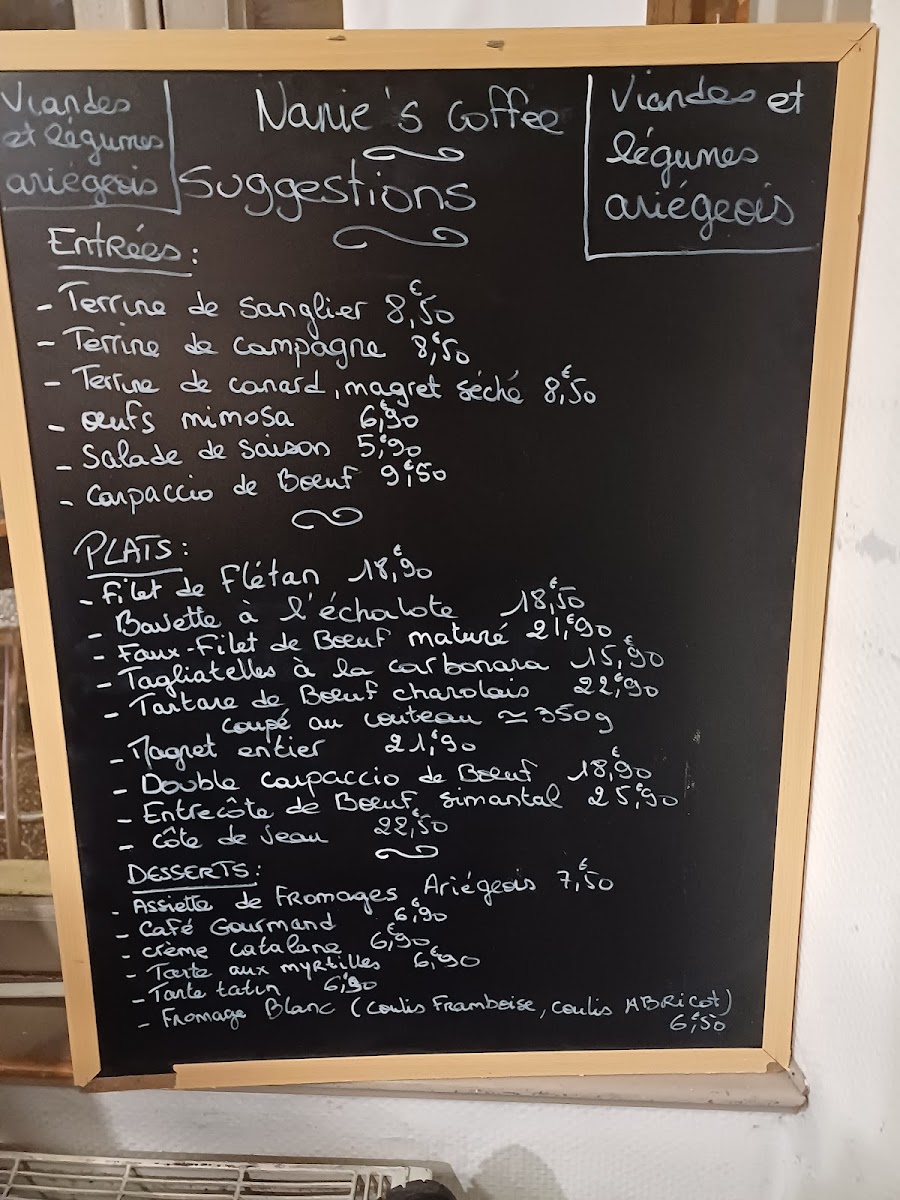 Viandes
et légumes
ariégeois
Nanie's Coffee
Suggestions
Viandes et
légumes
ariégeois
Entrées :
- Terrine de sanglier 8,€50
- Terrine de campagne 8,€50
- Terrine de canard, magret séché 8,€50
- œufs mimosa 6,€90
- Salade de saison 5,€90
- Carpaccio de Boeuf 9,€50
PLATS :
- Filet de Flétan 18,€90
- Bavette à l'échalote 18,€50
- Faux-Filet de Boeuf maturé 21,€90
- Tagliatelles à la carbonara 15,€90
- Tartare de Boeuf charolais 22,€90
coupé au couteau ≃ 350g
- Magret entier 21,€90
- Double carpaccio de Boeuf 18,€90
- Entrecôte de Boeuf simantal 25,€90
- Côte de Veau 22,€50
DESSERTS :
- Assiette de Fromages Ariégeois 7,€50
- Café Gourmand 6,€90
- crème catalane 6,€90
- Tarte aux myrtilles 6,€90
- Tarte tatin 6,€90
- Fromage Blanc (coulis Framboise, coulis ABRicot)
6,€50